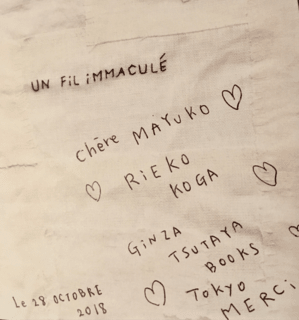 UN FiL iMMACULÉ
Chère MAYUKO
RiEKO
KOGA
GiNZA
TSUTAYA
BOOKS
TOKYO
MERCi
Le 28 OCTOBRE
2018